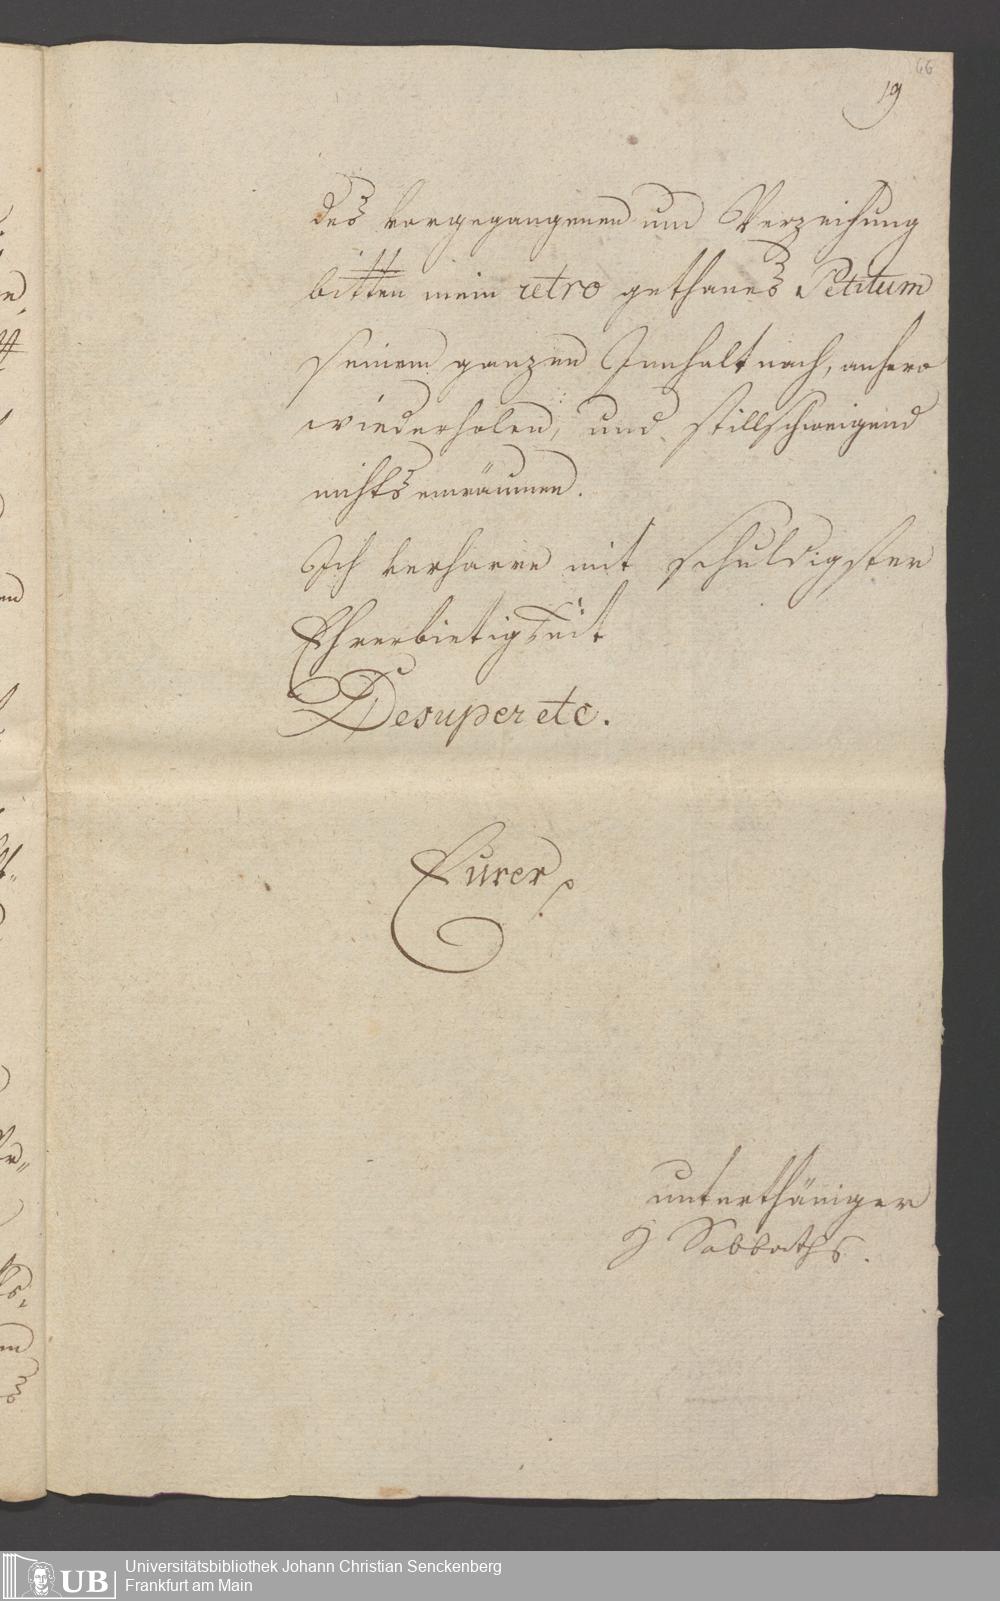 66
19
des vorgegangenen um Verzeihung
bitten mein retro gethanes Petitum
seinem ganzen Innhalt nach, anhero
wiederholen, und stillschweigend
nichts einräumen.
Ich verharre mit schuldigster
Ehrerbietigkeit
Desuper etc.
Eurer
unterthäniger
Sabbaths.
UB
Universitätsbibliothek Johann Christian Senckenberg
Frankfurt am Main